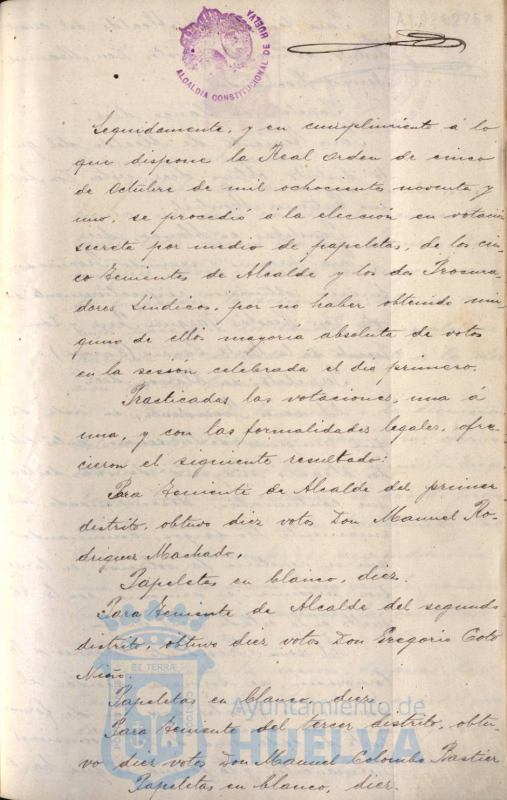 ALCALDIA CONSTITUCIONAL DE HUELVA
Seguidamente, y en cumplimiento á lo
que dispone la Real orden de cinco
de Octubre de mil ochocientos noventa y
uno, se procedió á la elección en votación
secreta por medio de papeletas, de los cin-
co Tenientes de Alcalde y los dos Procura-
dores Síndicos, por no haber obtenido nin-
guno de ellos mayoría absoluta de votos
en la sesión celebrada el día primero.
Practicadas las votaciones, una á
una, y con las formalidades legales, ofre-
cieron el siguiente resultado:
Para Teniente de Alcalde del primer
distrito, obtuvo diez votos Don Manuel Ro-
driguez Machado.
Papeletas en blanco, diez.
Para Teniente de Alcalde del segundo
distrito, obtuvo diez votos Don Gregorio Coto
Niño.
Papeletas en blanco, diez
Para Teniente del tercer distrito, obtu-
vo diez votos Don Manuel Colombo
Papeletas en blanco, diez.
Ayuntamiento de
HUELVA